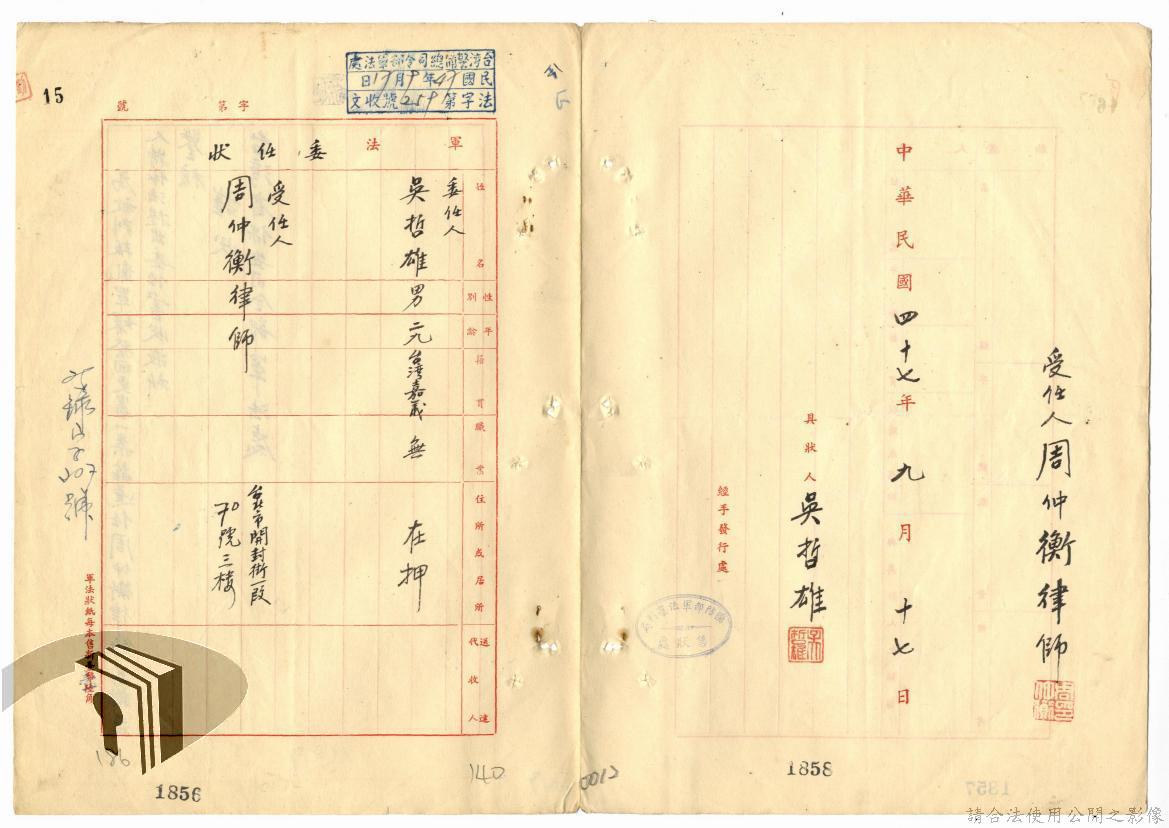 台灣警備總司令部軍法處
民國47年9月17日
法字第259號收文
15
字第 號
軍法委任狀
姓名
性別
年齡
籍貫
職業
住所或居所
送達代收人
委任人
吳哲雄
男
二九
台灣嘉義
無
在押
受任人
周仲衡律師
台北市開封街一段
70號三樓
140
1856
中華民國四十七年九月十七日
具狀人 吳哲雄
經手發行處
受任人 周仲衡律師
0012
1858
請合法使用公開之影像